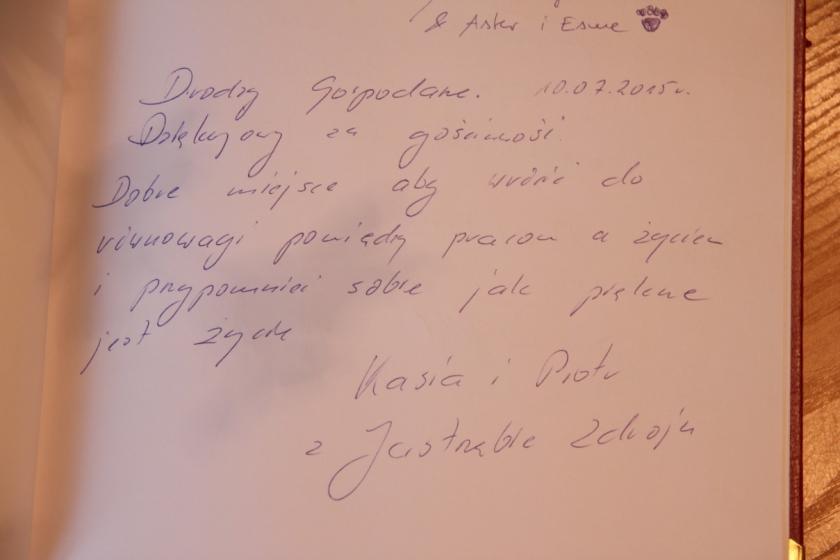 & Aster i Esme
Drodzy Gospodarze. 10.07.2015r.
Dziękujemy za gościnność.
Dobre miejsce aby wrócić do
równowagi pomiędzy pracom a życiem
i przypomnieć sobie jak piękne
jest życie
Kasia i Piotr
z Jastrzębie Zdroju